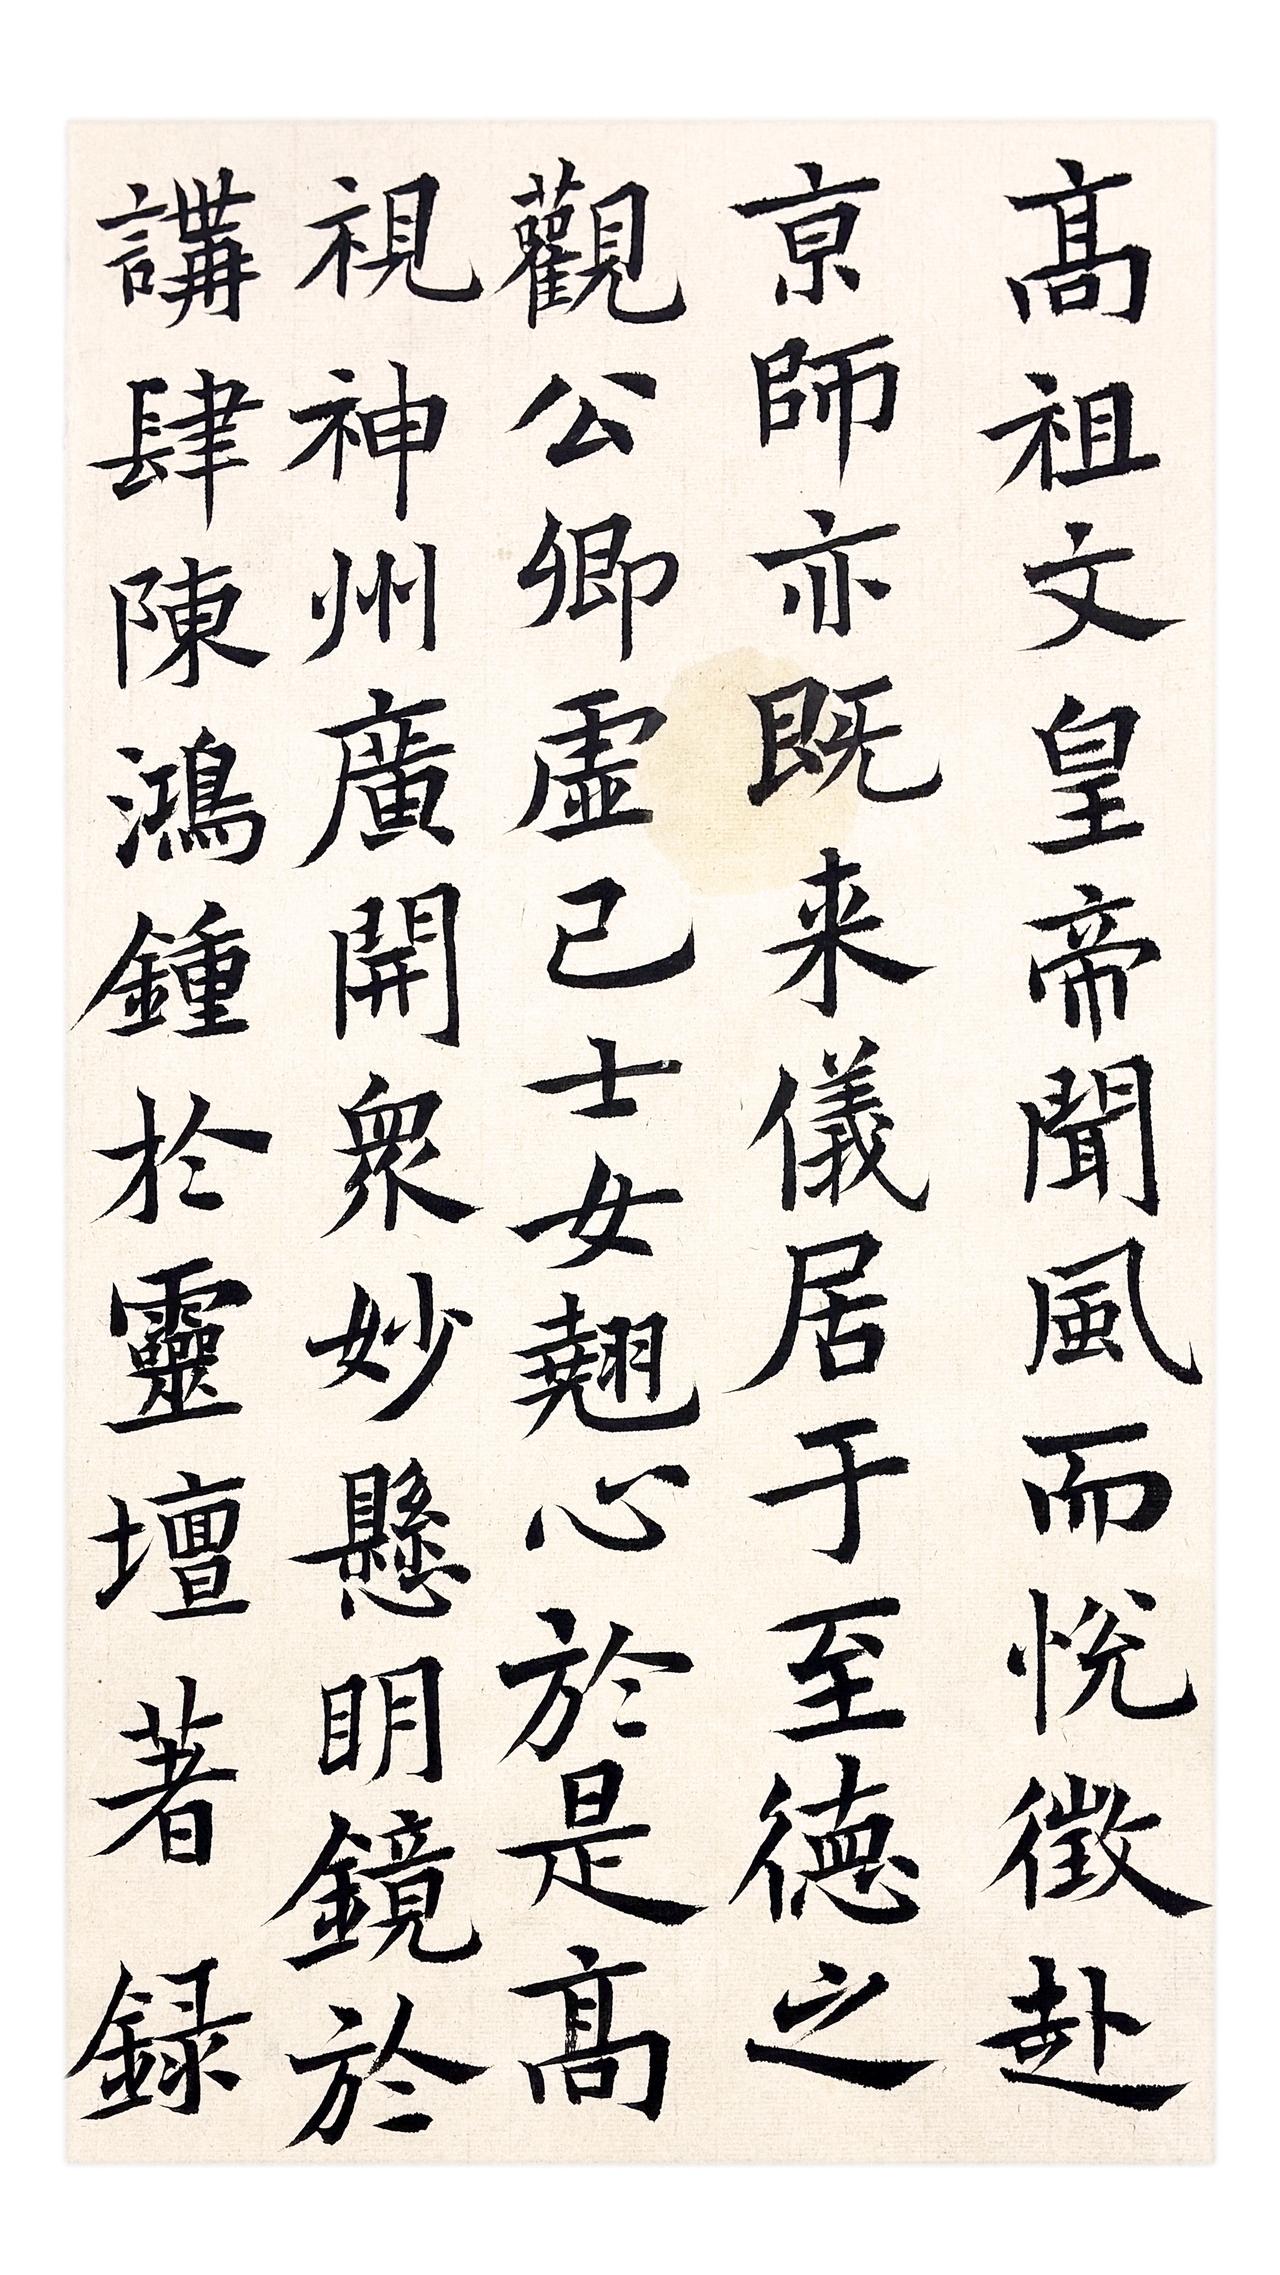 高祖文皇帝聞風而悅徵赴
京師亦既来儀居于至德之
觀公卿虛己士女翹心於是高
視神州廣開衆妙懸明鏡於
講肆陳鴻鍾於靈壇著錄